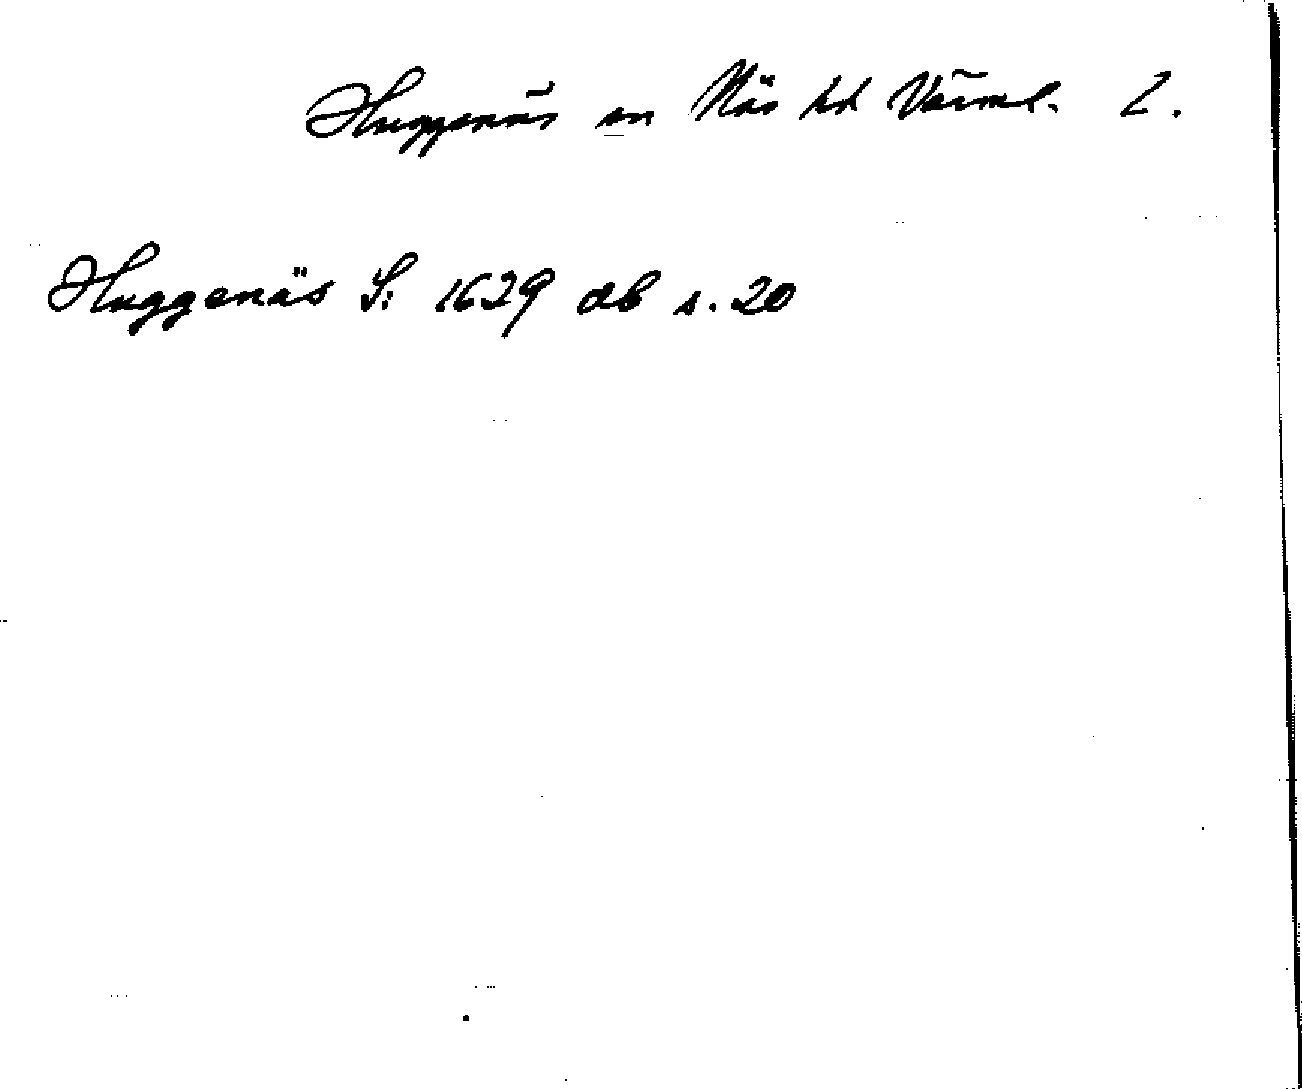 Huggenäs sn Näs hd Värml. L.
Huggenäs S: 1629 db s. 20